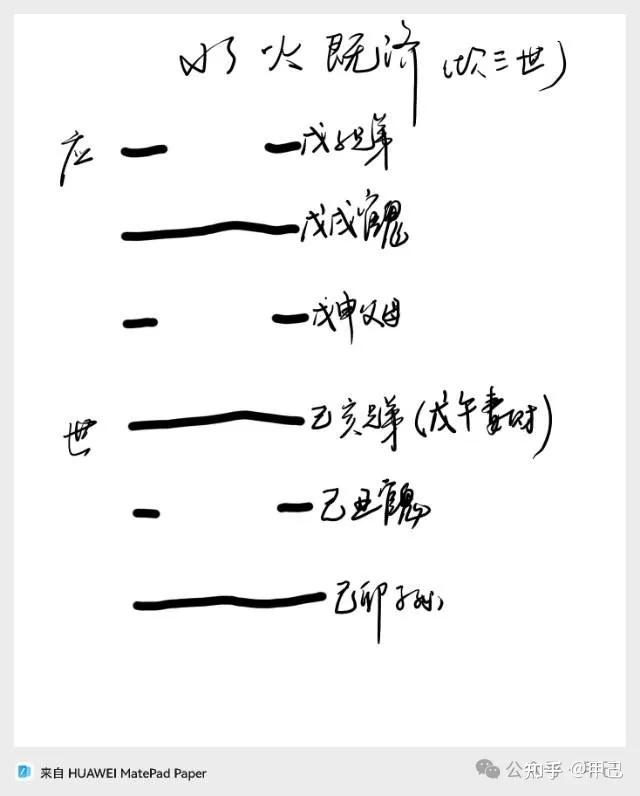 水火既济(坎三世)
应 戊子兄弟
戊戌官鬼
戊申父母
世 己亥兄弟(戊午妻财)
己丑官鬼
己卯子孙
来自 HUAWEI MatePad Paper
公众号
知乎 @玥己